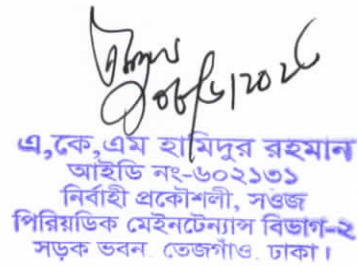 এ,কে,এম হামিদুর রহমান
আইডি নং-৬০২১৩১
নির্বাহী প্রকৌশলী, সওজ
পিরিয়ডিক মেইনটেন্যান্স বিভাগ-২
সড়ক ভবন, তেজগাঁও, ঢাকা।